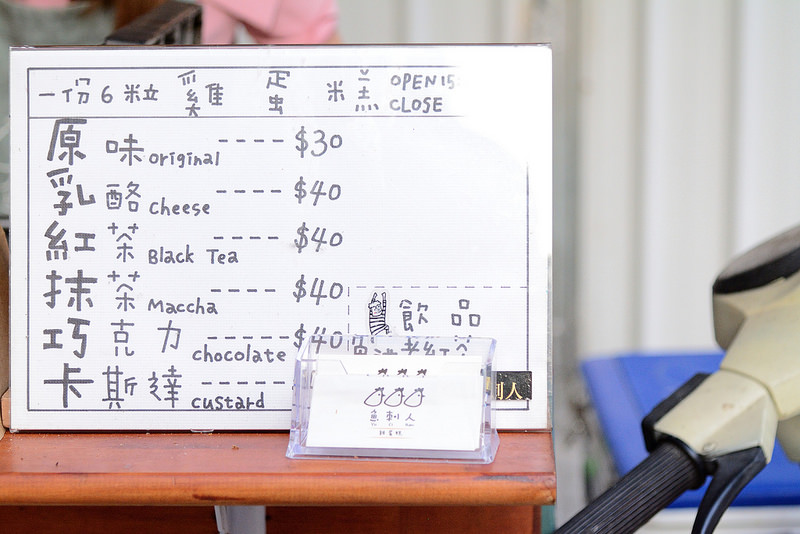 一份6粒 雞蛋糕 OPEN 15
CLOSE
原味 original ---- $30
乳酪 Cheese ---- $40
紅茶 Black Tea ---- $40
抹茶 Maccha ---- $40
巧克力 chocolate ---- $40
卡斯達 custard -----
飲品
紅茶
刺人
魚刺人
雞蛋糕